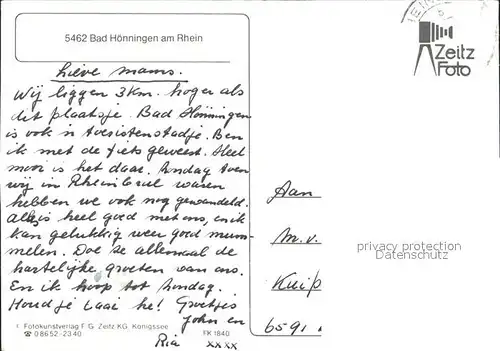 5462 Bad Hönningen am Rhein
Lieve mams.
Wij liggen 3 km. hoger als
dit plaatsje. Bad Hönningen
is ook 'n toeristenstadje. Ben
ik met de fiets geweest. Heel
mooi is het daar. Zondag toen
wij in Rheinbrol waren
hebben we ook nog gewandeld.
Alles is heel goed met ons, en ik
kan gelukkig weer goed mum-
melen. Doe ze allemaal de
hartelijke groeten van ons.
En ik hoop tot Zondag.
Houdje Laai he! Groetjes
John en
Ria xxxx
Fotokunstverlag F. G. Zeitz KG, Königssee
☎ 0 86 52 - 23 40
FK 1840
Zeitz
Foto
Aan
M.v.
Kuip
6591
privacy protection
watermarked